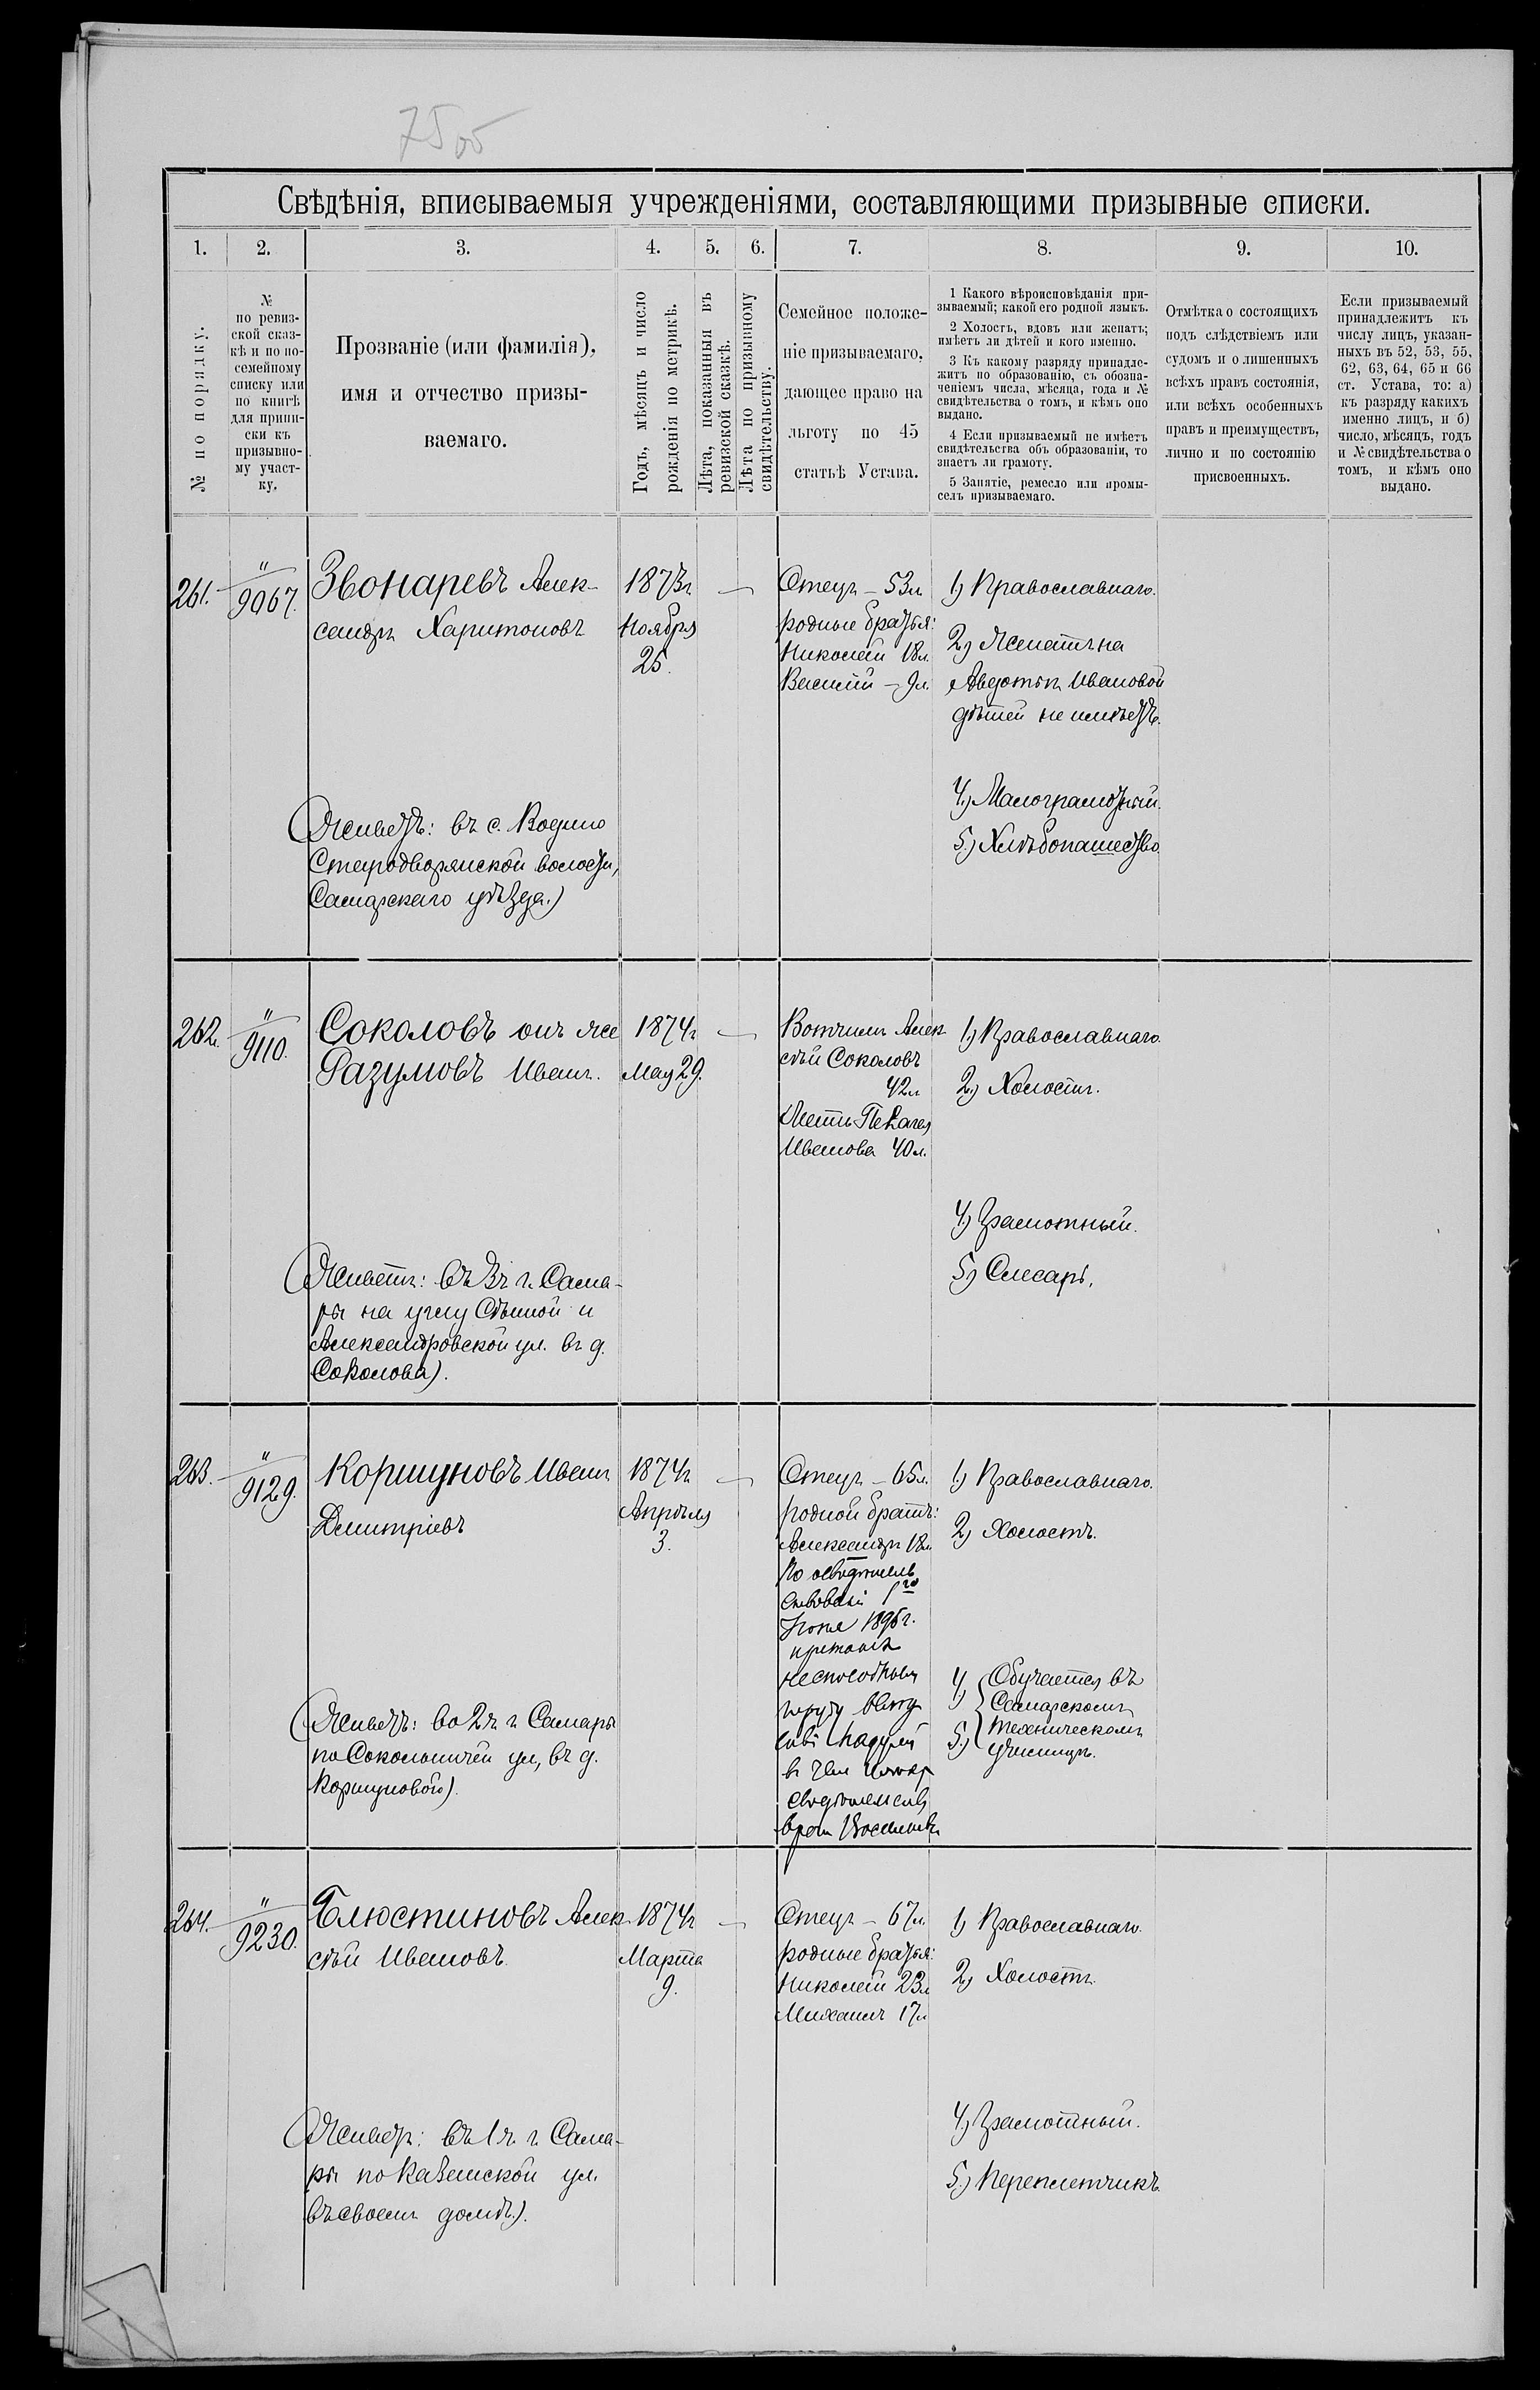 75об
Свѣдѣнія, вписываемыя учрежденіями, составляющими призывные списки.
1. 2. 3. 4. 5. 6. 7. 8. 9. 10.
№ по порядку.
№
по ревиз-
ской сказ-
кѣ и по по-
семейному
списку или
по книгѣ
для припи-
ски къ
призывно-
му участ-
ку.
Прозваніе (или фамилія),
имя и отчество призы-
ваемаго.
Годъ, мѣсяцъ и число
рожденія по метрикѣ.
Лѣта, показанныя въ
ревизской сказкѣ.
Лѣта по призывному
свидѣтельству.
Семейное положе-
ніе призываемаго,
дающее право на
льготу по 45
статьѣ Устава.
1 Какого вѣроисповѣданія при-
зываемый; какой его родной языкъ.
2 Холостъ, вдовъ или женатъ;
имѣетъ ли дѣтей и кого именно.
3 Къ какому разряду принадле-
житъ по образованію, съ обозна-
ченіемъ числа, мѣсяца, года и №
свидѣтельства о томъ, и кѣмъ оно
выдано.
4 Если призываемый не имѣетъ
свидѣтельства объ образованіи, то
знаетъ ли грамоту.
5 Занятіе, ремесло или промы-
селъ призываемаго.
Отмѣтка о состоящихъ
подъ слѣдствіемъ или
судомъ и о лишенныхъ
всѣхъ правъ состоянія,
или всѣхъ особенныхъ
правъ и преимуществъ,
лично и по состоянію
присвоенныхъ.
Если призываемый
принадлежитъ къ
числу лицъ, указан-
ныхъ въ 52, 53, 55,
62, 63, 64, 65 и 66
ст. Устава, то: а)
къ разряду какихъ
именно лицъ, и б)
число, мѣсяцъ, годъ
и № свидѣтельства о
томъ, и кѣмъ оно
выдано.
261.
"
9067.
Звонаревъ Алек-
сандръ Харитоновъ
(Живетъ: въ с. Водино
Стародворянской волости,
Самарскаго уѣзда.)
1873г
Ноября
25.
—
Отецъ – 53л.
родные братья:
Николай 18л.
Василій – 9л.
1) Православнаго.
2) Женатъ на
Авдотьѣ Ивановой
дѣтей не имѣетъ.
4.) Малограмотный.
5.) Хлѣбопашество.
262.
"
9110.
Соколовъ онъ же
Разумовъ Иванъ.
(Живетъ: въ 3 ч. г. Сама-
ры на углу Сѣнной и
Александровской ул. въ д.
Соколова).
1874г
Мая 29.
—
Вотчимъ Алек
сѣй Соколовъ
42л
Мать Пелагея
Иванова 40л.
1) Православнаго.
2.) Холостъ.
4.) Грамотный.
5) Слесарь.
263.
"
9129.
Коршуновъ Иванъ
Дмитріевъ
(Живетъ: во 2 ч. г. Самары
по Сокольничьей ул, въ д.
Коршуновой).
1874г
Апрѣля
3.
—
Отецъ – 65л.
родной братъ:
Александръ 18л.
По освидѣтель
ствованіи 1го
1895г.
къ
труду
въ чемъ
врачъ
1) Православнаго.
2) Холостъ.
4)
5.)
Обучается въ
Самарскомъ
техническомъ
училищѣ.
264.
"
9230.
Блюстиновъ Алек-
сѣй Ивановъ.
(Живетъ: въ 1 ч. г. Сама-
ры по Казанской ул.
въ своемъ домѣ.).
1874г
Марта
9.
—
Отецъ – 67л.
родные братья:
Николай 23л
Михаилъ 17л
1) Православнаго.
2) Холостъ.
4.) Грамотный.
5.) Переплетчикъ.